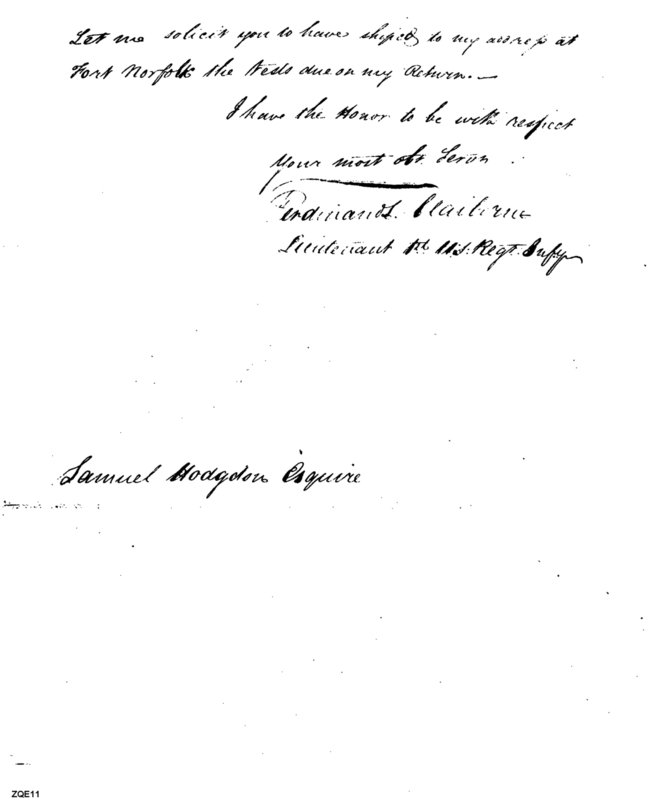 Let me solicit you to have shiped to my adress at
Fort Norfolk the due on my Return.—
I have the Honor to be with respect
Your most obt. Servn
Ferdinand L. Claiborne
Lieutenant U.S. Regt. Infy
Samuel Hodgdon Esquire
ZQE11